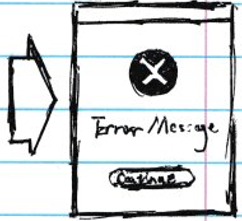 Error Message
Continue